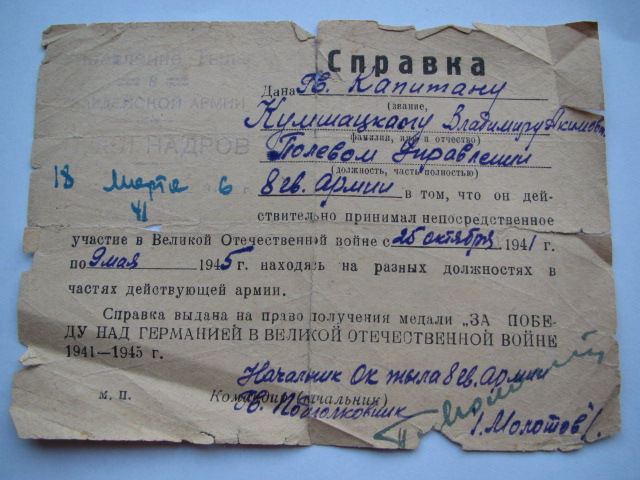 Управление Тыла
8
ГВАРДЕЙСКОЙ АРМИИ
КАДРОВ
18 марта 6 г
41
Справка
Дана Гв. Капитану
(звание,
Кумшацкому Владимиру Акимович
фамилия, имя и отчество)
Полевом Управлении
(должность, часть полностью)
8 гв. армии в том, что он дей-
ствительно принимал непосредственное
участие в Великой Отечественной войне с 25 октября 1941 г.
по 9 мая 1945 г. находясь на разных должностях в
частях действующей армии.
Справка выдана на право получения медали „ЗА ПОБЕ-
ДУ НАД ГЕРМАНИЕЙ В ВЕЛИКОЙ ОТЕЧЕСТВЕННОЙ ВОЙНЕ
1941—1945 г.
Начальник Ок тыла 8 гв. армии
м. п. Командир (начальник)
Гв. Подполковник
Молотов